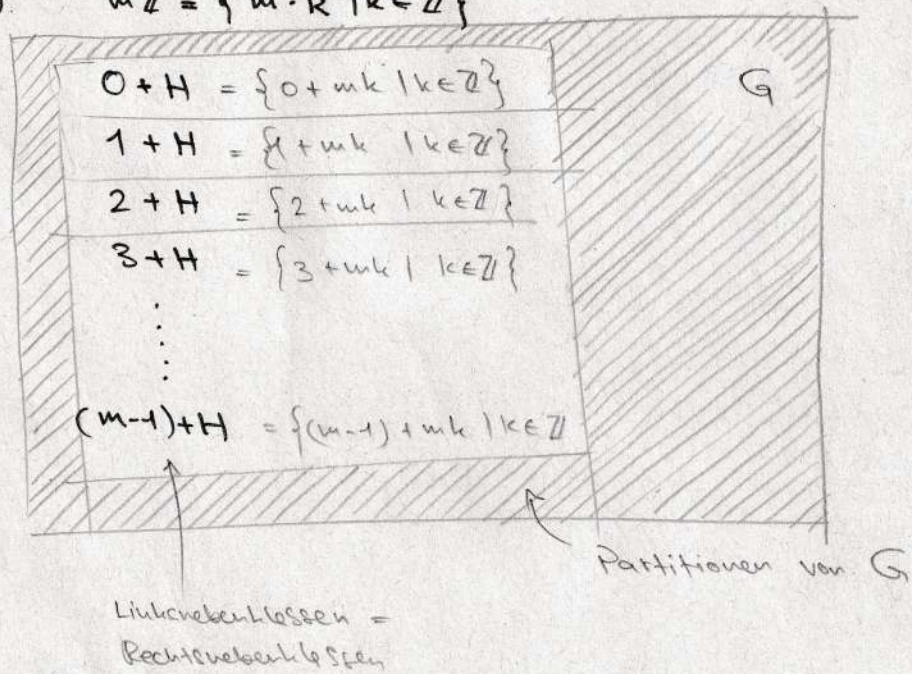 mℤ = { m · k | k ∈ ℤ }
0 + H = {0 + mk | k ∈ ℤ}
G
1 + H = {1 + mk | k ∈ ℤ}
2 + H = {2 + mk | k ∈ ℤ}
3 + H = {3 + mk | k ∈ ℤ}
(m-1)+H = {(m-1) + mk | k ∈ ℤ
Partitionen von G
Linksnebenklassen =
Rechtsnebenklassen